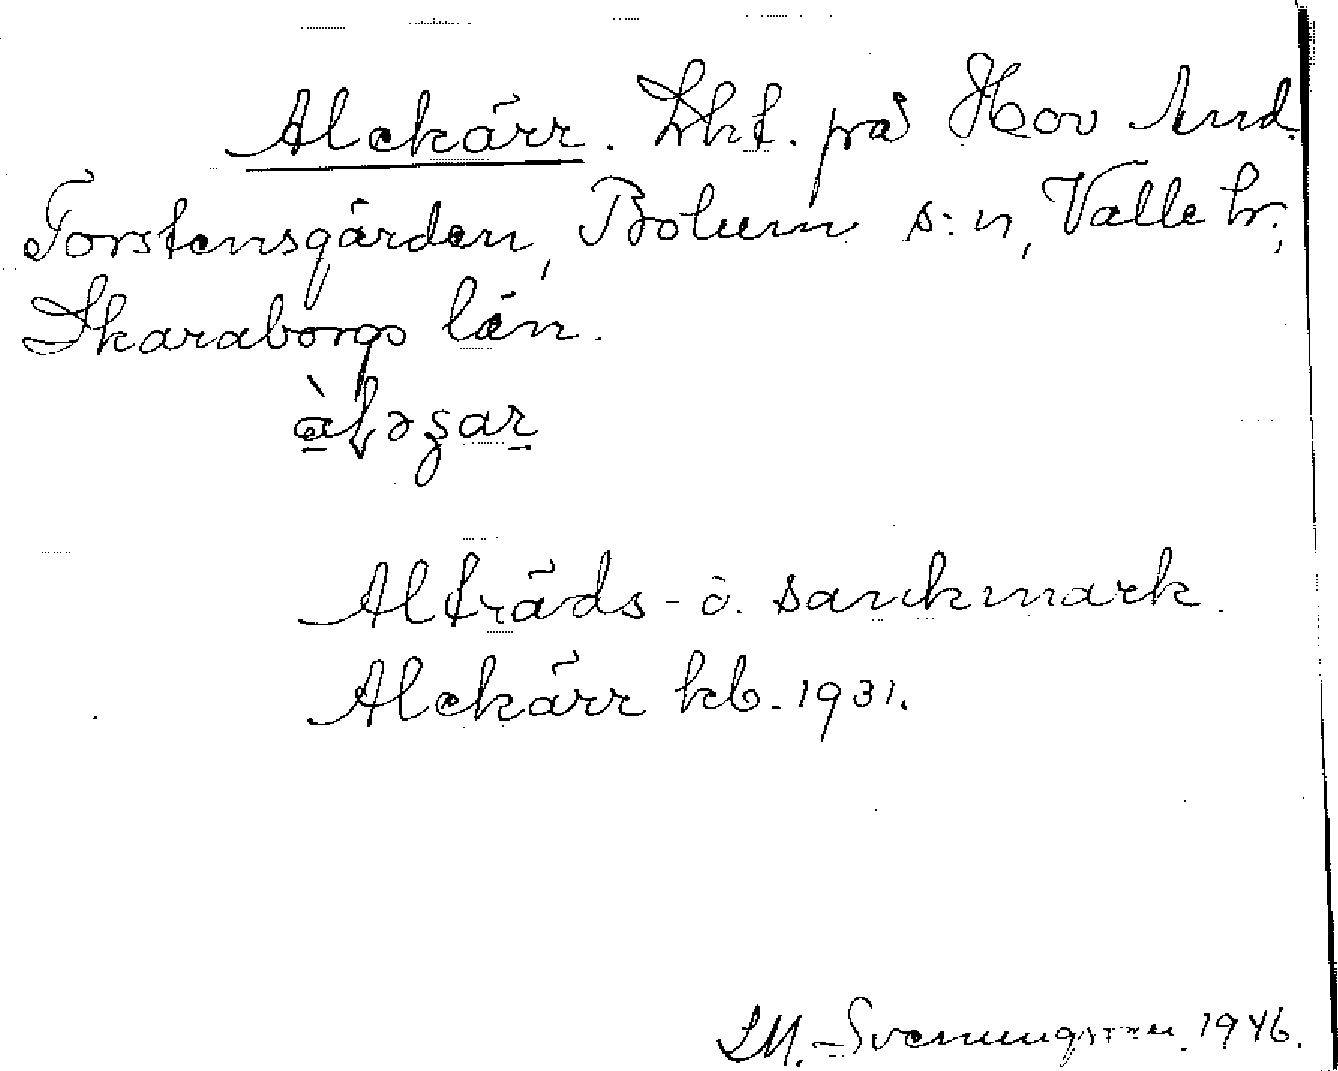 Alekärr. Lht. på Hov And.
Torstensgården, Bolum s:n, Valle hr,
Skaraborgs län.
Alträds- o. sankmark.
Alekärr kb. 1931.
LM.-Svenungsson. 1946.